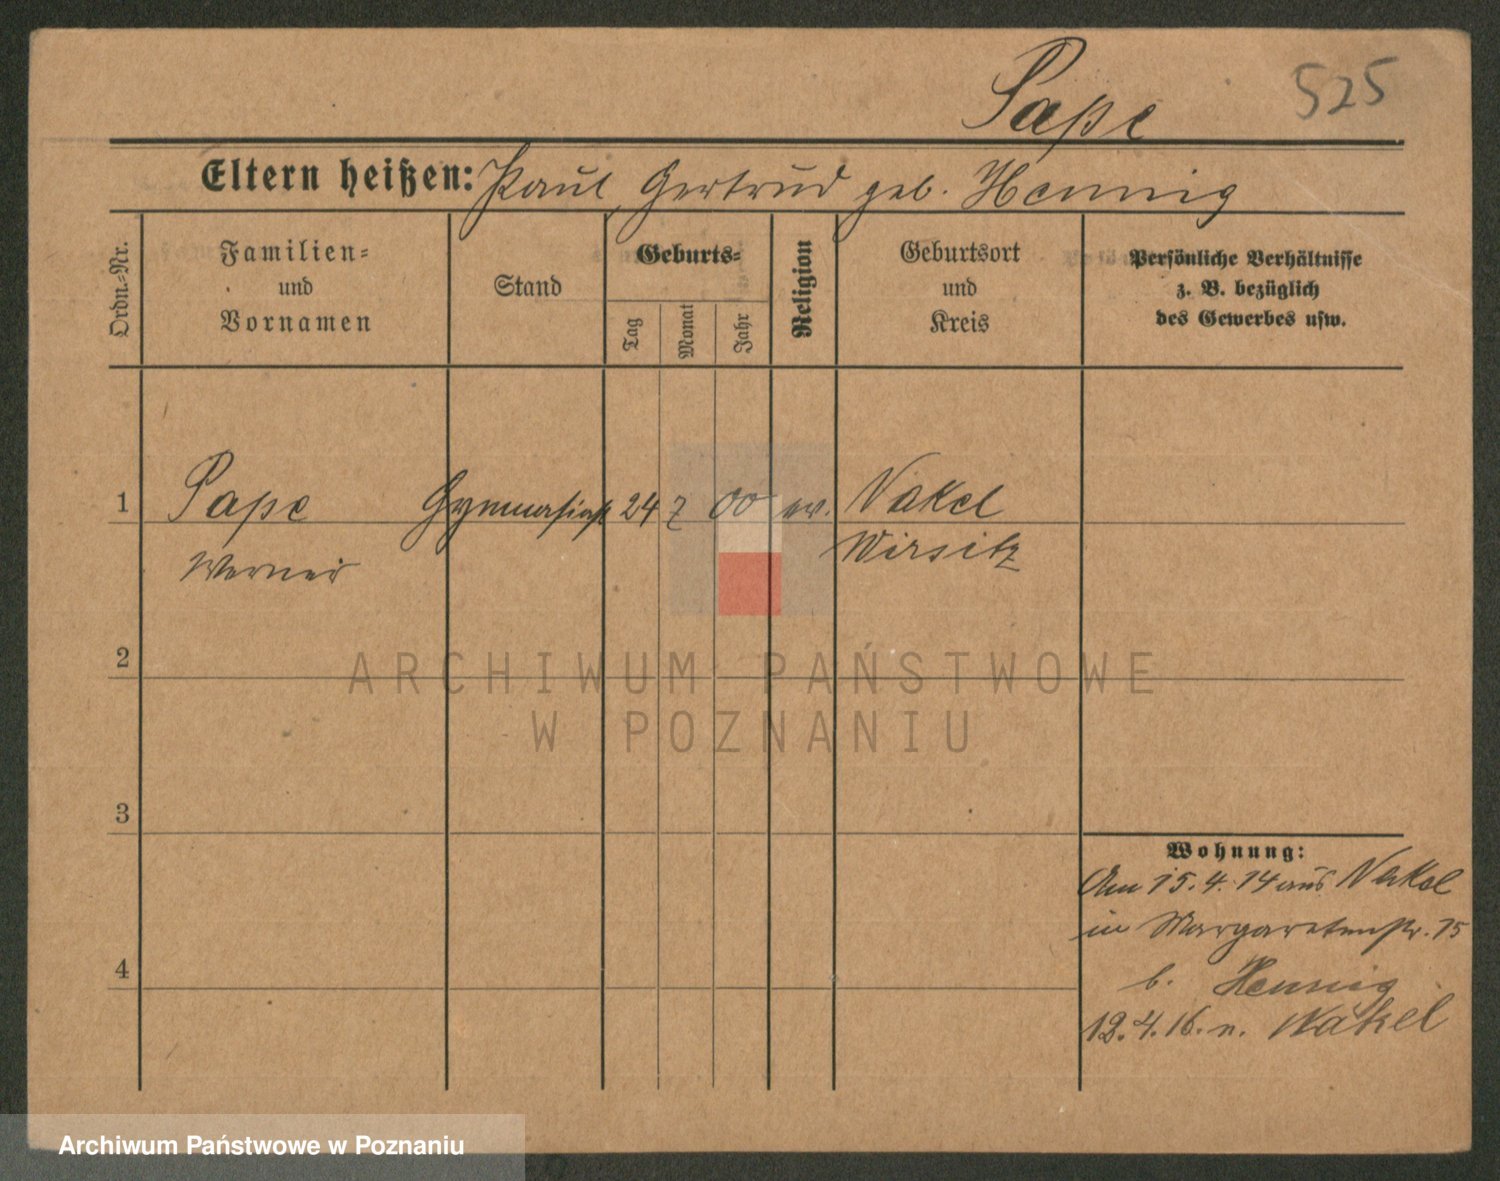 Pape 525
Eltern heißen: Paul, Gertrud geb. Hennig
Ordn.-Nr.
Familien-
und
Vornamen
Stand
Geburts-
Tag
Monat
Jahr
Religion
Geburtsort
und
Kreis
Persönliche Verhältnisse
z. B. bezüglich
des Gewerbes usw.
1 Pape Gymnasiast 24 7 00 ev. Nakel
Werner Wirsitz
2
ARCHIWUM PAŃSTWOWE
W POZNANIU
3
Wohnung:
Am 15.4.14 aus Nakel
in Margaretenstr. 15
4 b. Hennig
12.4.16. n. Nakel
Archiwum Państwowe w Poznaniu